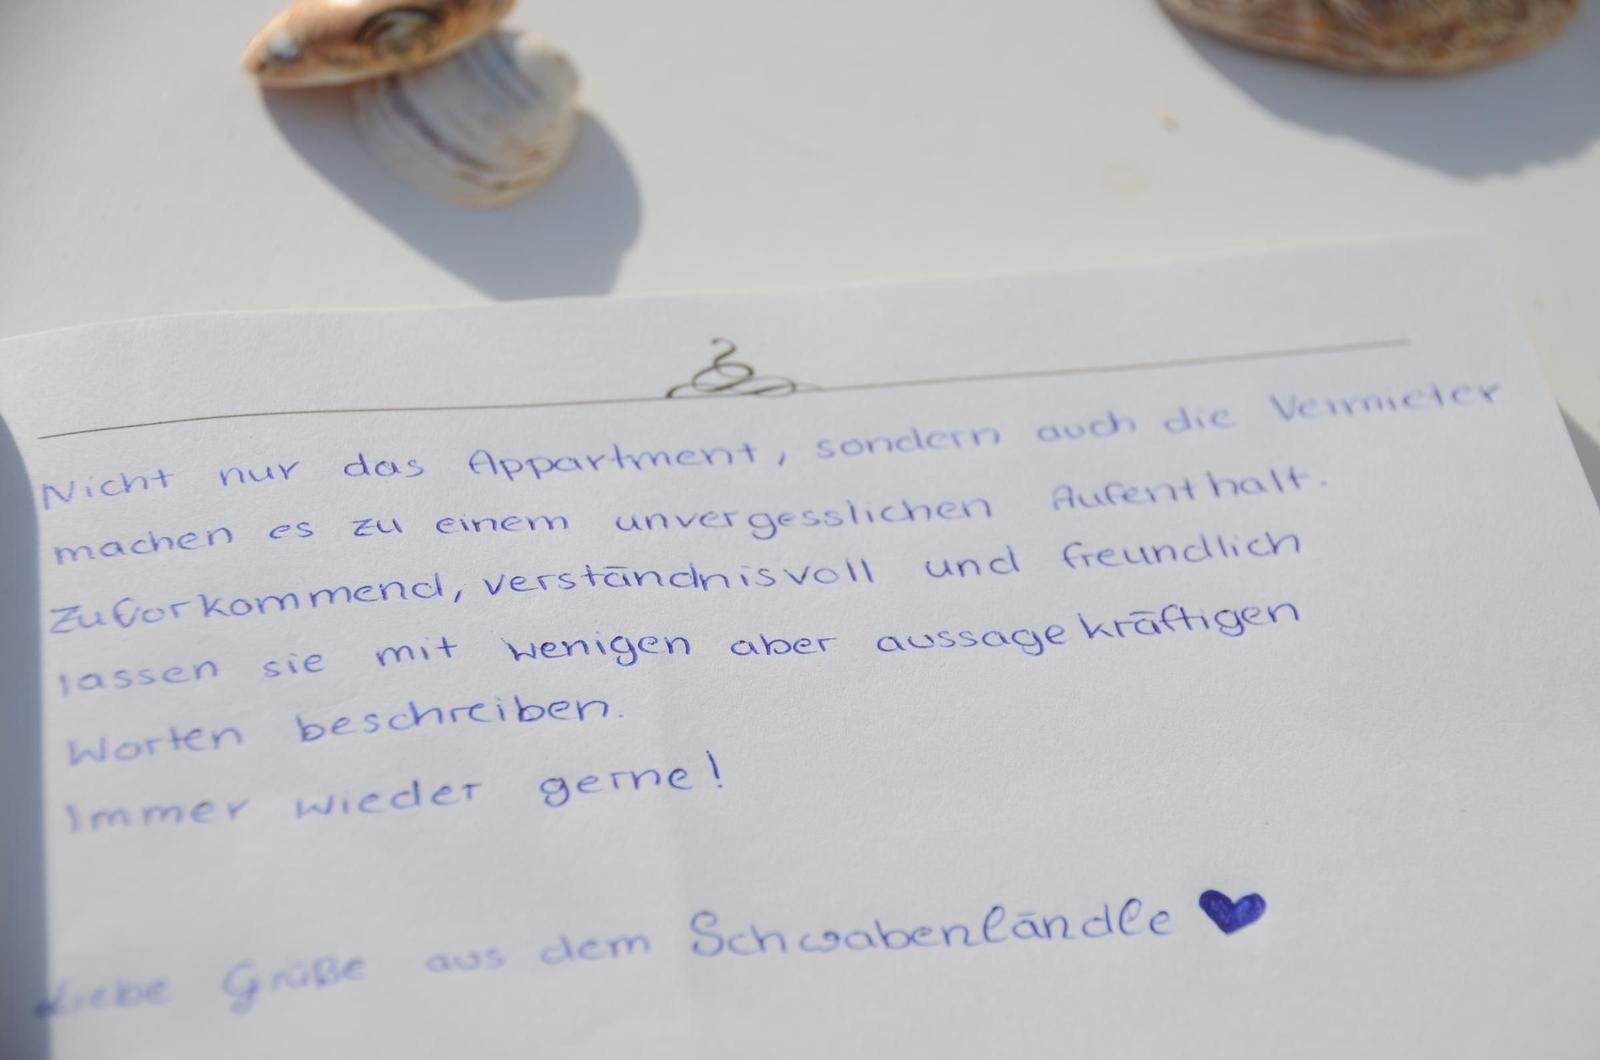 Nicht nur das Appartment, sondern auch die Vermieter
machen es zu einem unvergesslichen Aufenthalt.
Zuvorkommend, verständnisvoll und freundlich
lassen sie mit wenigen aber aussagekräftigen
Worten beschreiben.
Immer wieder gerne!
Liebe Grüße aus dem Schwabenländle